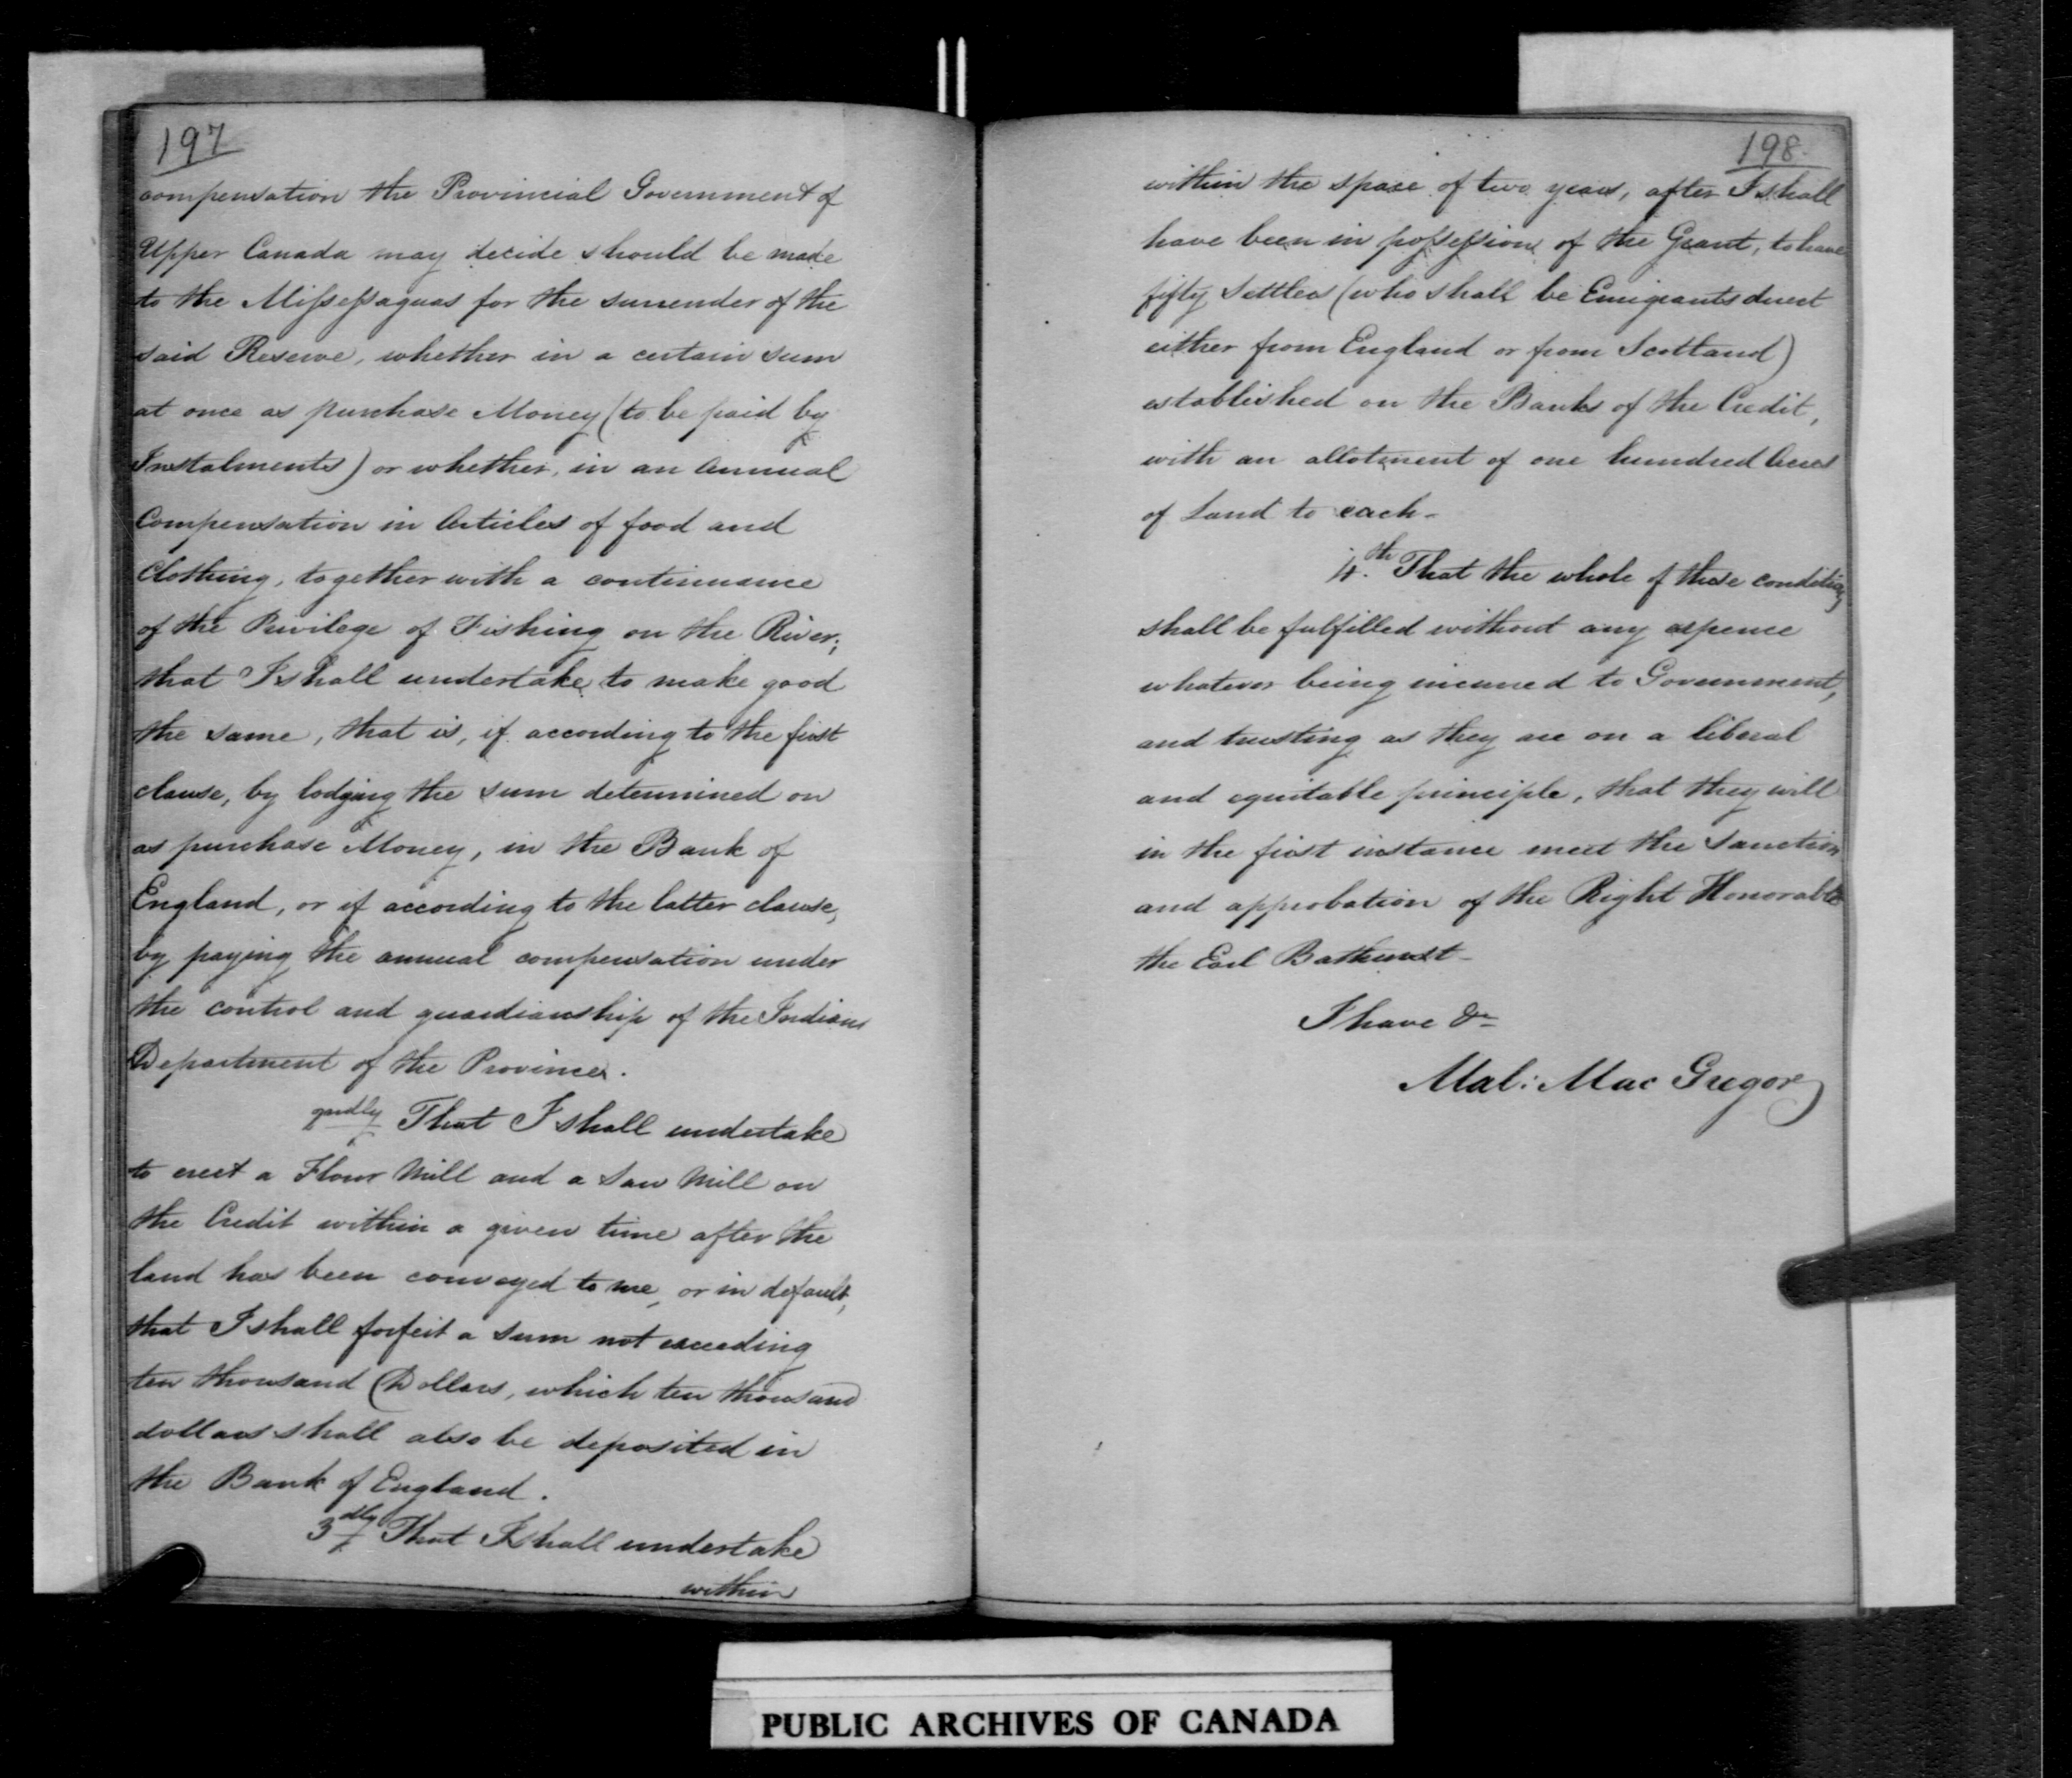 197
compensation the Provincial Government of
Upper Canada may decide should be made
to the Missessaguas for the surrender of the
said Reserve, whether in a certain sum
at once as purchase Money (to be paid by
Instalments) or whether, in an Annual
Compensation in Articles of food and
Clothing, together with a continuance
of the Privilege of Fishing on the River;
that I shall undertake to make good
the same, that is, if according to the first
clause, by lodging the sum determined on
as purchase Money, in the Bank of
England, or if according to the latter clause,
by paying the annual compensation under
the control and guardianship of the Indian
Department of the Province.
2ndly That I shall undertake
to erect a Flour Mill and a Saw Mill on
the Credit within a given time after the
land has been conveyed to me, or in default,
that I shall forfeit a sum not exceeding
ten thousand Dollars, which ten thousand
dollars shall also be deposited in
the Bank of England.
3dly That I shall undertake
within
198
within the space of two years, after I shall
have been in possession of the Grant, to have
fifty Settlers (who shall be Emigrants direct
either from England or from Scotland)
established on the Banks of the Credit,
with an allotment of one hundred Acres
of Land to each-
4th. That the whole of these conditions
shall be fulfilled without any expence
whatever being incurred to Government,
and trusting as they are on a liberal
and equitable principle, that they will
in the first instance meet the Sanction
and approbation of the Right Honorable
the Earl Bathurst-
I have &c
Mal: Mac Gregor
PUBLIC ARCHIVES OF CANADA